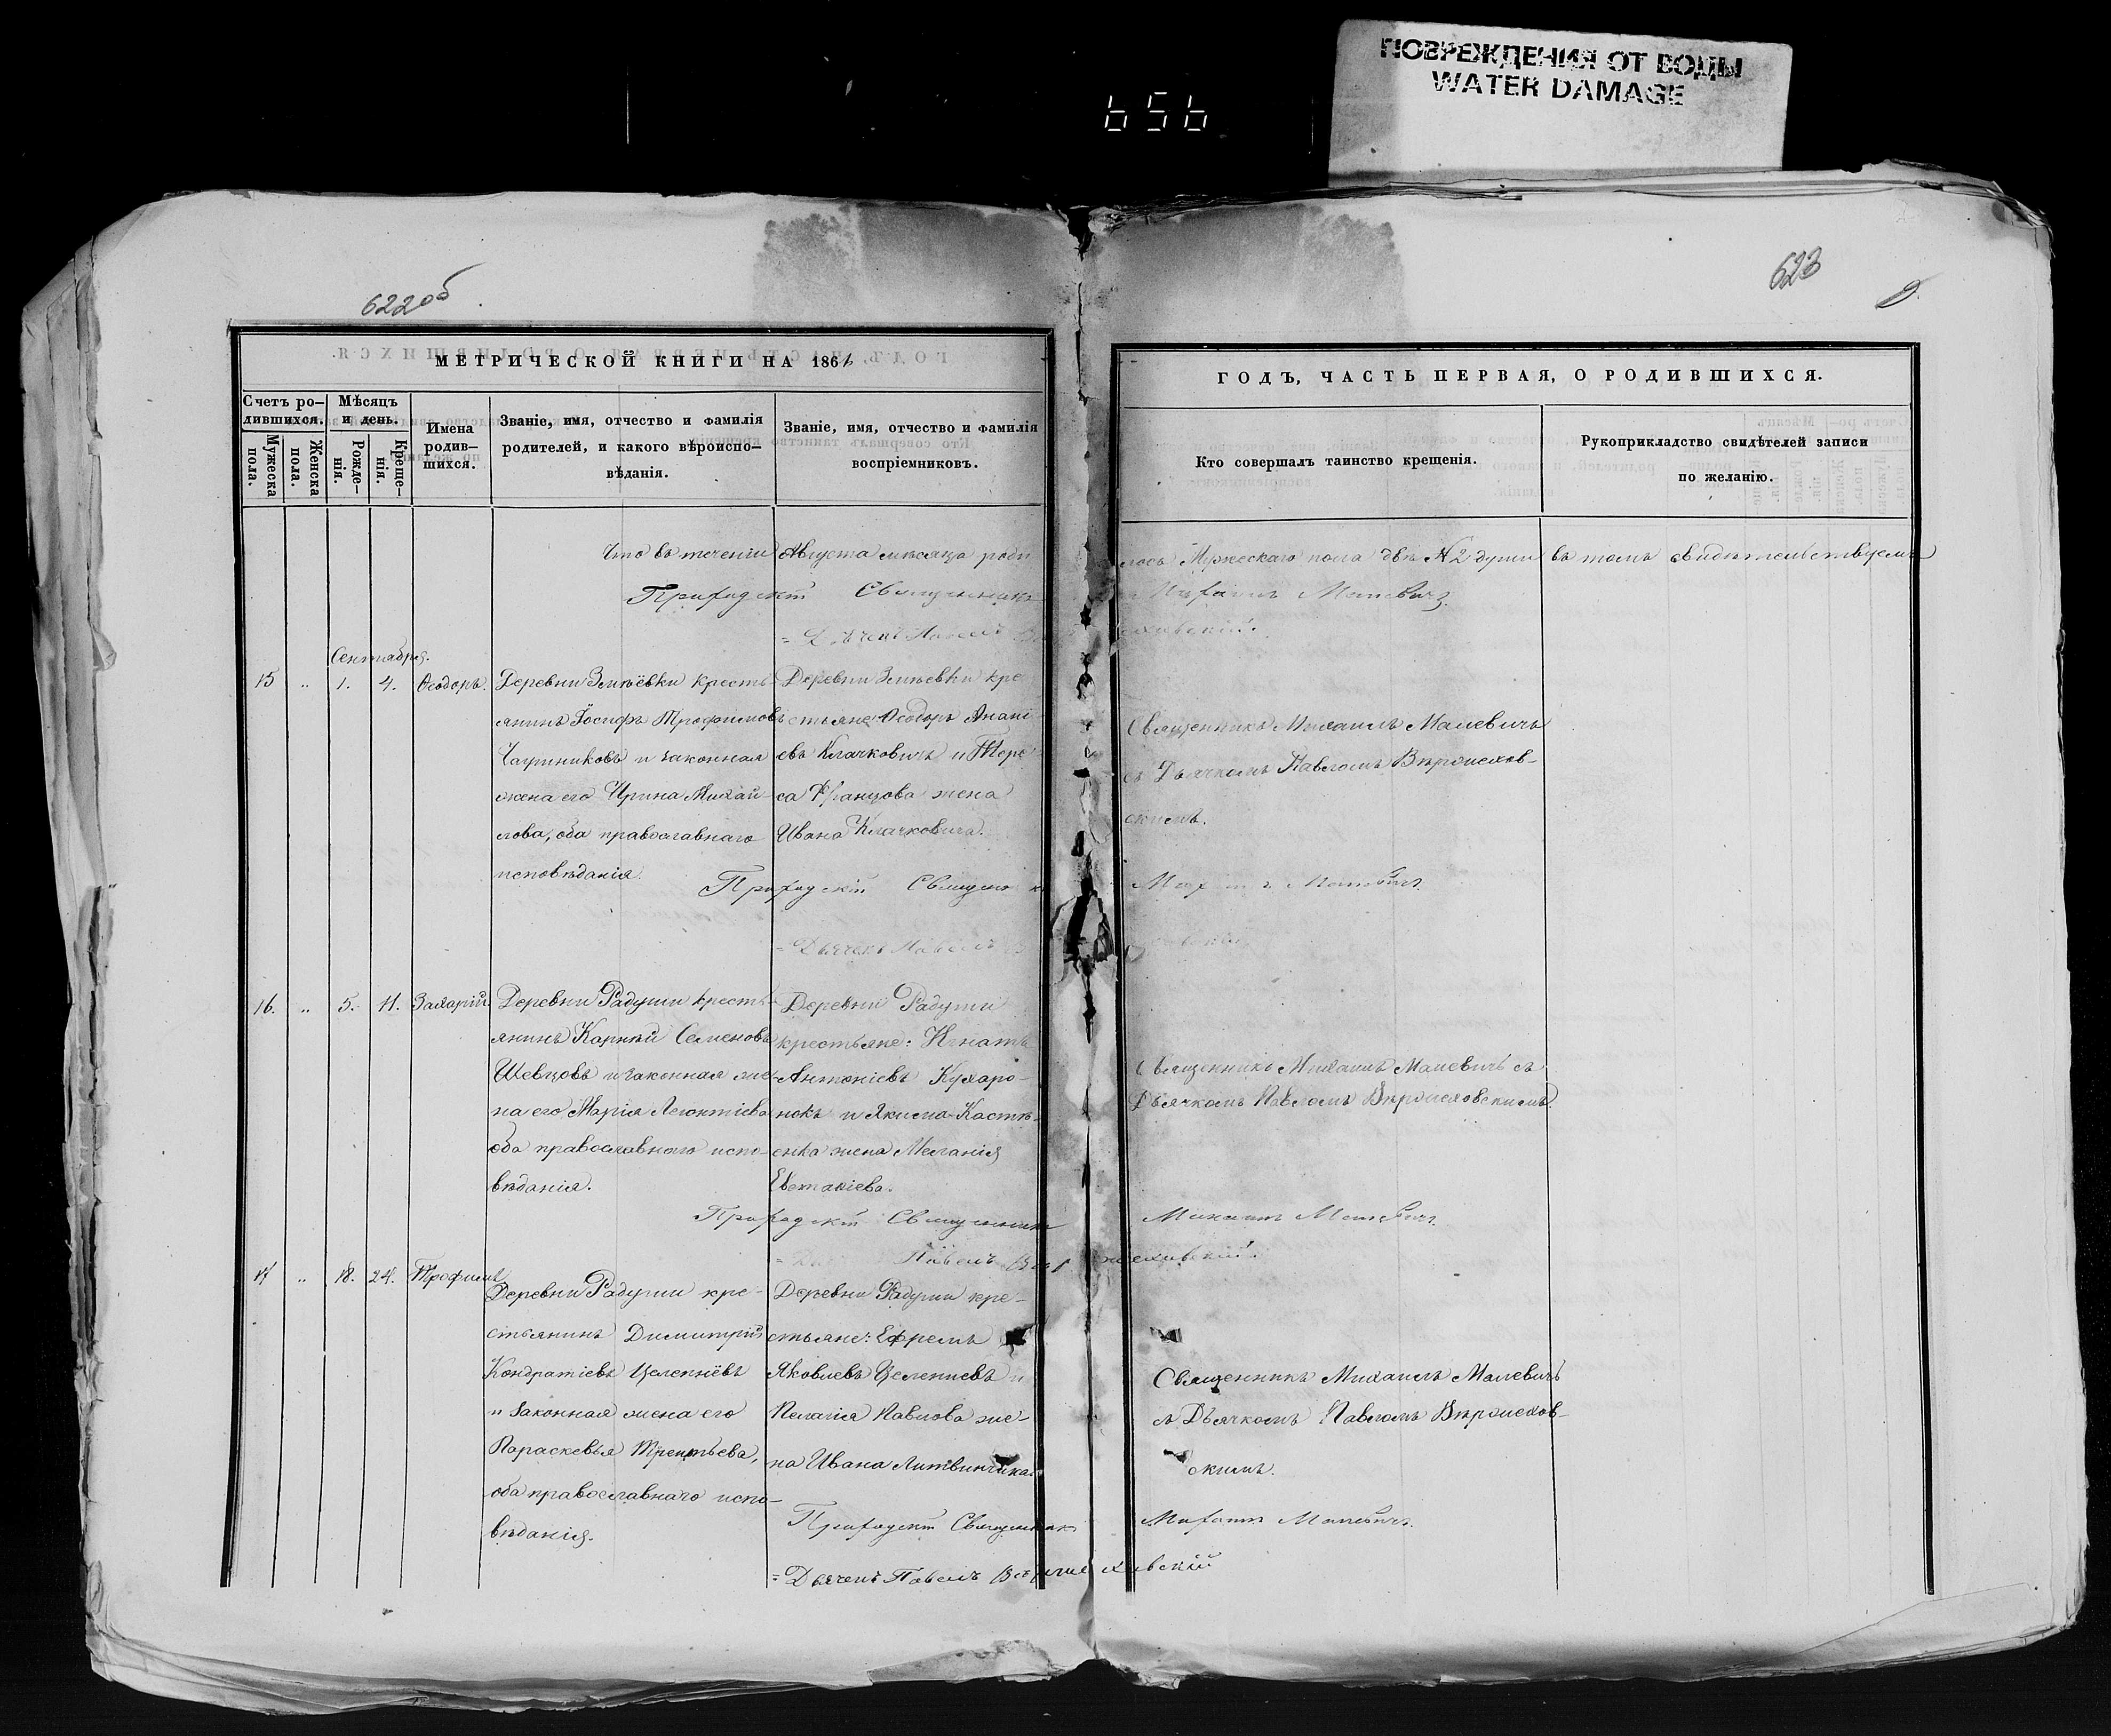 ПОВРЕЖДЕНИЯ ОТ ВОДЫ
WATER DAMAGE
656
622об
623
МЕТРИЧЕСКОЙ КНИГИ НА 1861
Счетъ ро-
дившихся.
Мужеска
пола.
Женска
пола.
Мѣсяцъ
и день.
Рожде-
нія.
Креще-
нія.
Имена
родив-
шихся.
Званіе, имя, отчество и фамилія
родителей, и какого вѣроиспо-
вѣданія.
Званіе, имя, отчество и фамилія
воспріемниковъ.
ГОДЪ, ЧАСТЬ ПЕРВАЯ, О РОДИВШИХСЯ.
Кто совершалъ таинство крещенія.
Рукоприкладство свидѣтелей записи
по желанію.
Что въ теченіи Августа мѣсяца роди
лось Мужескаго пола двѣ №2 души въ томъ свидѣтельствуемъ
Приходскій Священникъ Михаилъ Малевичъ
Дьячекъ Павелъ
Сентября.
15 „ 1. 4. Ѳеодоръ.
Деревни Змѣёвки кресть-
янинъ Іосифъ Трофимовъ
и законная
жена его Ирина Михай-
лова, оба православнаго
исповѣданія.
Деревни Змѣевки кре
стьяне: Ѳеодоръ Анані
евъ Клачковичъ и Тере
са Францова жена
Ивана Клачковича.
Священникъ Михаилъ Малевичъ
съ Дьячкомъ Павломъ
скимъ.
Приходскій Священникъ Михаилъ Малевичъ
Дьячекъ Павелъ
16. „ 5. 11. Захарій.
Деревни Радуши кресть-
янинъ Карпѣй Семеновъ
Шевцовъ и законная же-
на его Марія Леонтіева
оба православнаго испо-
вѣданія.
Деревни Радуши
крестьяне: Игнатъ
Антоніевъ Кухаро-
нокъ и Якима Костѣ-
енка жена Меланія
Евстафіева.
Священникъ Михаилъ Малевичъ съ
Дьячкомъ Павломъ
Приходскій Священникъ Михаилъ Малевичъ
Павелъ
17 „ 18. 24. Трофимъ
Деревни Радуши кре-
стьянинъ Димитрій
Кондратіевъ Целепнёвъ
и законная жена его
Параскевья Терентьева,
оба православнаго испо-
вѣданія.
Деревни Радуши кре-
стьяне: Ефремъ
Яковлевъ Целепневъ и
Пелагія Павлова же-
на Ивана Литвинчика
Священникъ Михаилъ Малевичъ
съ Дьячкомъ Павломъ
скимъ.
Приходскій Священникъ Михаилъ Малевичъ
Дьячекъ Павелъ